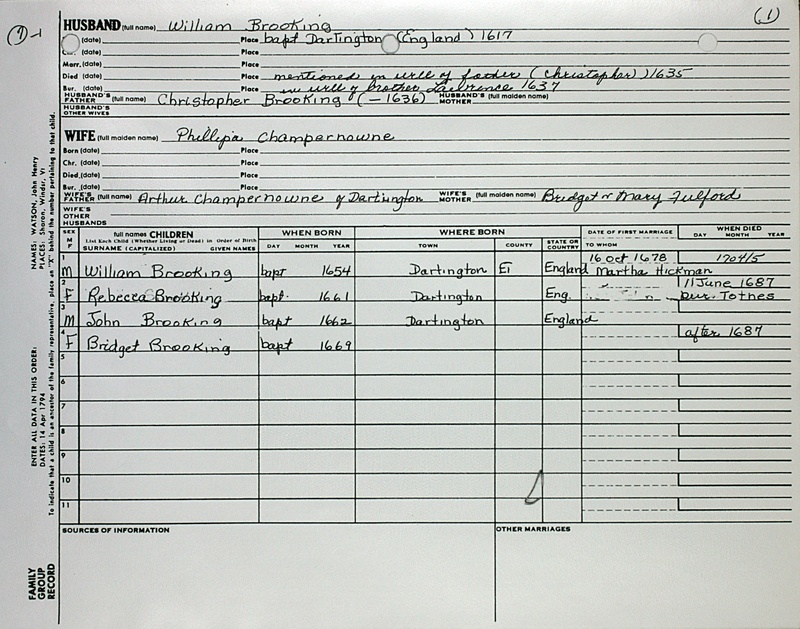 (1)
HUSBAND (full name) William Brooking
(date) Place bapt Dartington (England) 1617
(date) Place
Marr. (date) Place
Died (date) Place mentioned in will of father (Christopher) 1635
Bur. (date) Place in will of brother Lawrence 1637
HUSBAND'S FATHER (full name) Christopher Brooking (-1636) HUSBAND'S MOTHER (full maiden name)
HUSBAND'S OTHER WIVES
WIFE (full maiden name) Phillipa Champernowne
Born (date) Place
Chr. (date) Place
Died (date) Place
Bur. (date) Place
WIFE'S FATHER (full name) Arthur Champernowne of Dartington WIFE'S MOTHER (full maiden name) Bridget or Mary Fulford
WIFE'S OTHER HUSBANDS
SEX M F full names CHILDREN WHEN BORN WHERE BORN DATE OF FIRST MARRIAGE WHEN DIED
List Each Child (Whether Living or Dead) in Order of Birth
SURNAME (CAPITALIZED) GIVEN NAMES DAY MONTH YEAR TOWN COUNTY STATE OR COUNTRY TO WHOM DAY MONTH YEAR
1 16 Oct 1678 1704/5
M William Brooking bapt 1654 Dartington England Martha Hickman
2 11 June 1687
F Rebecca Brooking bapt. 1661 Dartington Eng. bur. Totnes
3
M John Brooking bapt 1662 Dartington England
4 after 1687
F Bridget Brooking bapt 1669
5
6
7
8
9
10
11
SOURCES OF INFORMATION OTHER MARRIAGES
NAMES: WATSON, John Henry
PLACES: Sharon, Windsr, Vt
ENTER ALL DATA IN THIS ORDER:
DATES: 14 Apr 1794
To indicate that a child is an ancestor of the family representative, place an "X" behind the number pertaining to that child.
FAMILY
GROUP
RECORD